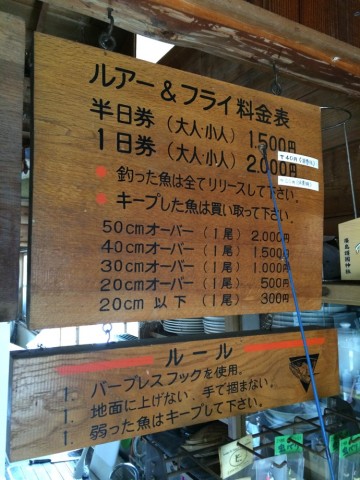 ルアー＆フライ料金表
半日券（大人・小人）1.500円
1日券（大人・小人）2.000円
釣った魚は全てリリースして下さい。
キープした魚は買い取って下さい。
50cmオーバー（1尾）2.000円
40cmオーバー（1尾）1.500円
30cmオーバー（1尾）1.000円
20cmオーバー（1尾）500円
20cm以下（1尾）300円
ルール
1. バーブレスフックを使用。
1. 地面に上げない、手で掴まない。
1. 弱った魚はキープして下さい。